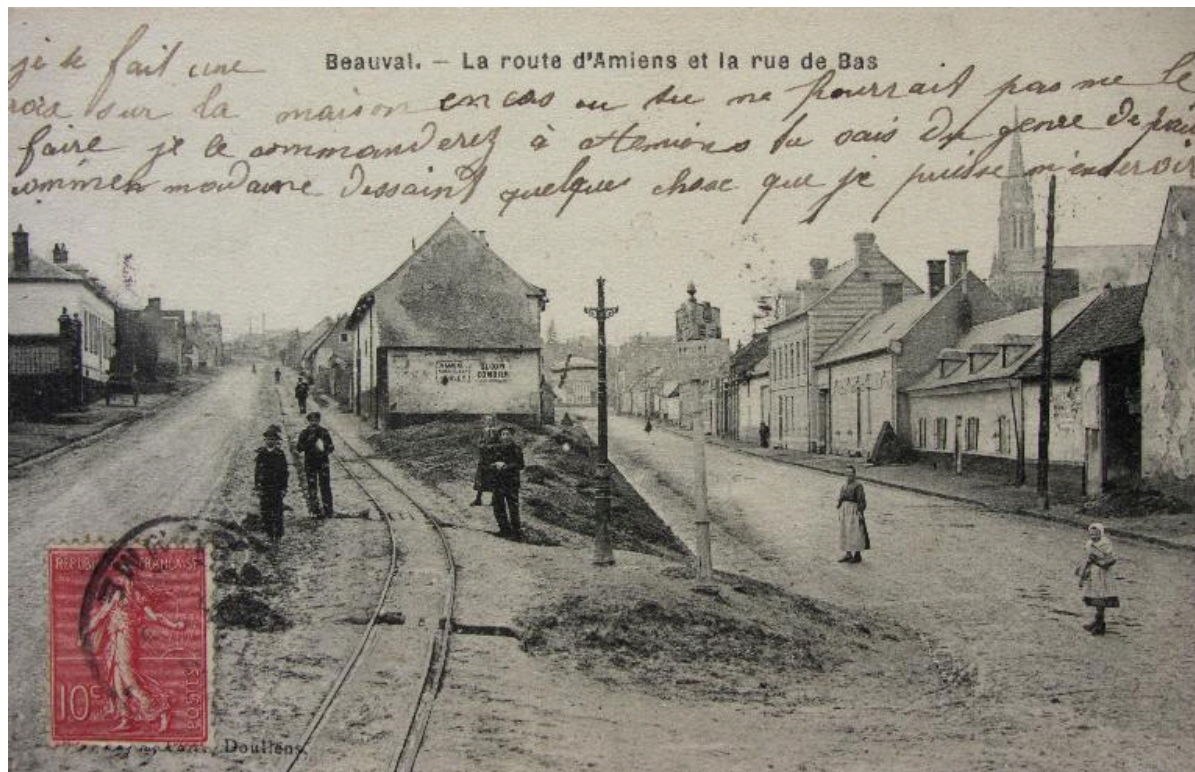 Beauval. — La route d'Amiens et la rue de Bas
je te fait une
sur la maison en cas ou tu ne pourrait pas me le
faire je le commanderez à tu sais du genre de
madame Dessaint quelques chose que je puisse
REPUBLIQUE FRANÇAISE
POSTES
10c
Doullens.